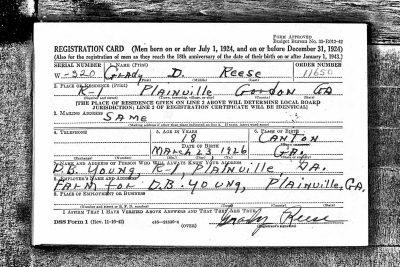 FORM APPROVED
Budget Bureau No. 33-R012-42
REGISTRATION CARD (Men born on or after July 1, 1924, and on or before December 31, 1924)
(Also for the registration of men as they reach the 18th anniversary of the date of their birth on or after January 1, 1943.)
SERIAL NUMBER 1. NAME (Print) ORDER NUMBER
W-320 Grady D. Reese 11650
(First) (Middle) (Last)
2. PLACE OF RESIDENCE (Print)
R-1 Plainville Gordon GA
[THE PLACE OF RESIDENCE GIVEN ON LINE 2 ABOVE WILL DETERMINE LOCAL BOARD
JURISDICTION; LINE 2 OF REGISTRATION CERTIFICATE WILL BE IDENTICAL]
3. MAILING ADDRESS
SAME
4. TELEPHONE 5. AGE IN YEARS 6. PLACE OF BIRTH
18 CANTON
DATE OF BIRTH
MARCH 23 1926 GA.
7. NAME AND ADDRESS OF PERSON WHO WILL ALWAYS KNOW YOUR ADDRESS
D.B. Young, R-1, Plainville, GA.
8. EMPLOYER'S NAME AND ADDRESS
Farm for D.B. Young, Plainville, GA,
9. PLACE OF EMPLOYMENT OR BUSINESS
I AFFIRM THAT I HAVE VERIFIED ABOVE ANSWERS AND THAT THEY ARE TRUE.
DSS Form 1 (Rev. 11-16-42) (OVER) Grady Reese
(Registrant's signature)